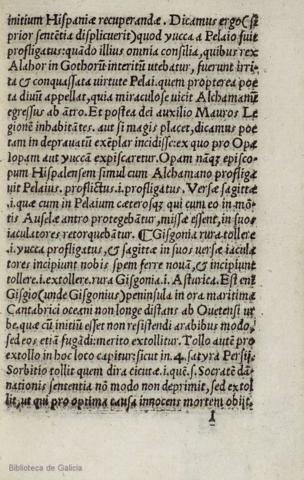 initium Hispaniæ recuperandæ. Dicamus ergo (si
prior sentẽtia displicuerit) quod yucca a Pelaio fuit
profligatus: quãdo illius omnia consilia, quibus rex
Alahor in Gothorũ interitũ utebatur, fuerunt irri-
ta & conquassata uirtute Pelai. quem propterea poe
ta diuũ appellat, quia miraculose uicit Alchamanũ
egressus ab ãtro. Et postea dei auxilio Mauros Le
gionẽ inhabitãtes. aut si magis placet, dicamus poe
tam in deprauatũ exẽplar incidisse: ex quo pro Opa
lopam aut yuccã expiscaretur. Opam nãq; episco-
pum Hispalensem simul cum Alchamano profliga
uit Pelaius. proflictus .i. profligatus. Versæ sagittæ
.i. quæ cum in Pelaium cæterosq; qui cum eo in mõ-
tis Auselæ antro protegebãtur, missæ essent, in suos
iaculatores retorquebãtur. ¶ Gisgonia rura tollere
.i. yucca profligatus, & sagittæ in suos versæ iacula-
tores incipiunt nobis spem ferre nouã, & incipiunt
tollere .i. extollere. rura Gisgonia .i. Asturica. Est enĩ
Gisgio (unde Gisgonius) peninsula in ora maritima
Cantabrici oceani non longe distans ab Ouetensi ur
be. quæ cũ initiũ esset non resistendi arabibus modo,
sed eos etiã fugãdi: merito extollitur. Tollo autẽ pro
extollo in hoc loco capitur: sicut in .4. satyra Persij.
Sorbitio tollit quem dira cicutæ .i. quẽ .s. Socratẽ dã-
nationis sententia nõ modo non deprimit, sed extol
lit, ut qui pro optima causa innocens mortem obijt.
1
Biblioteca de Galicia